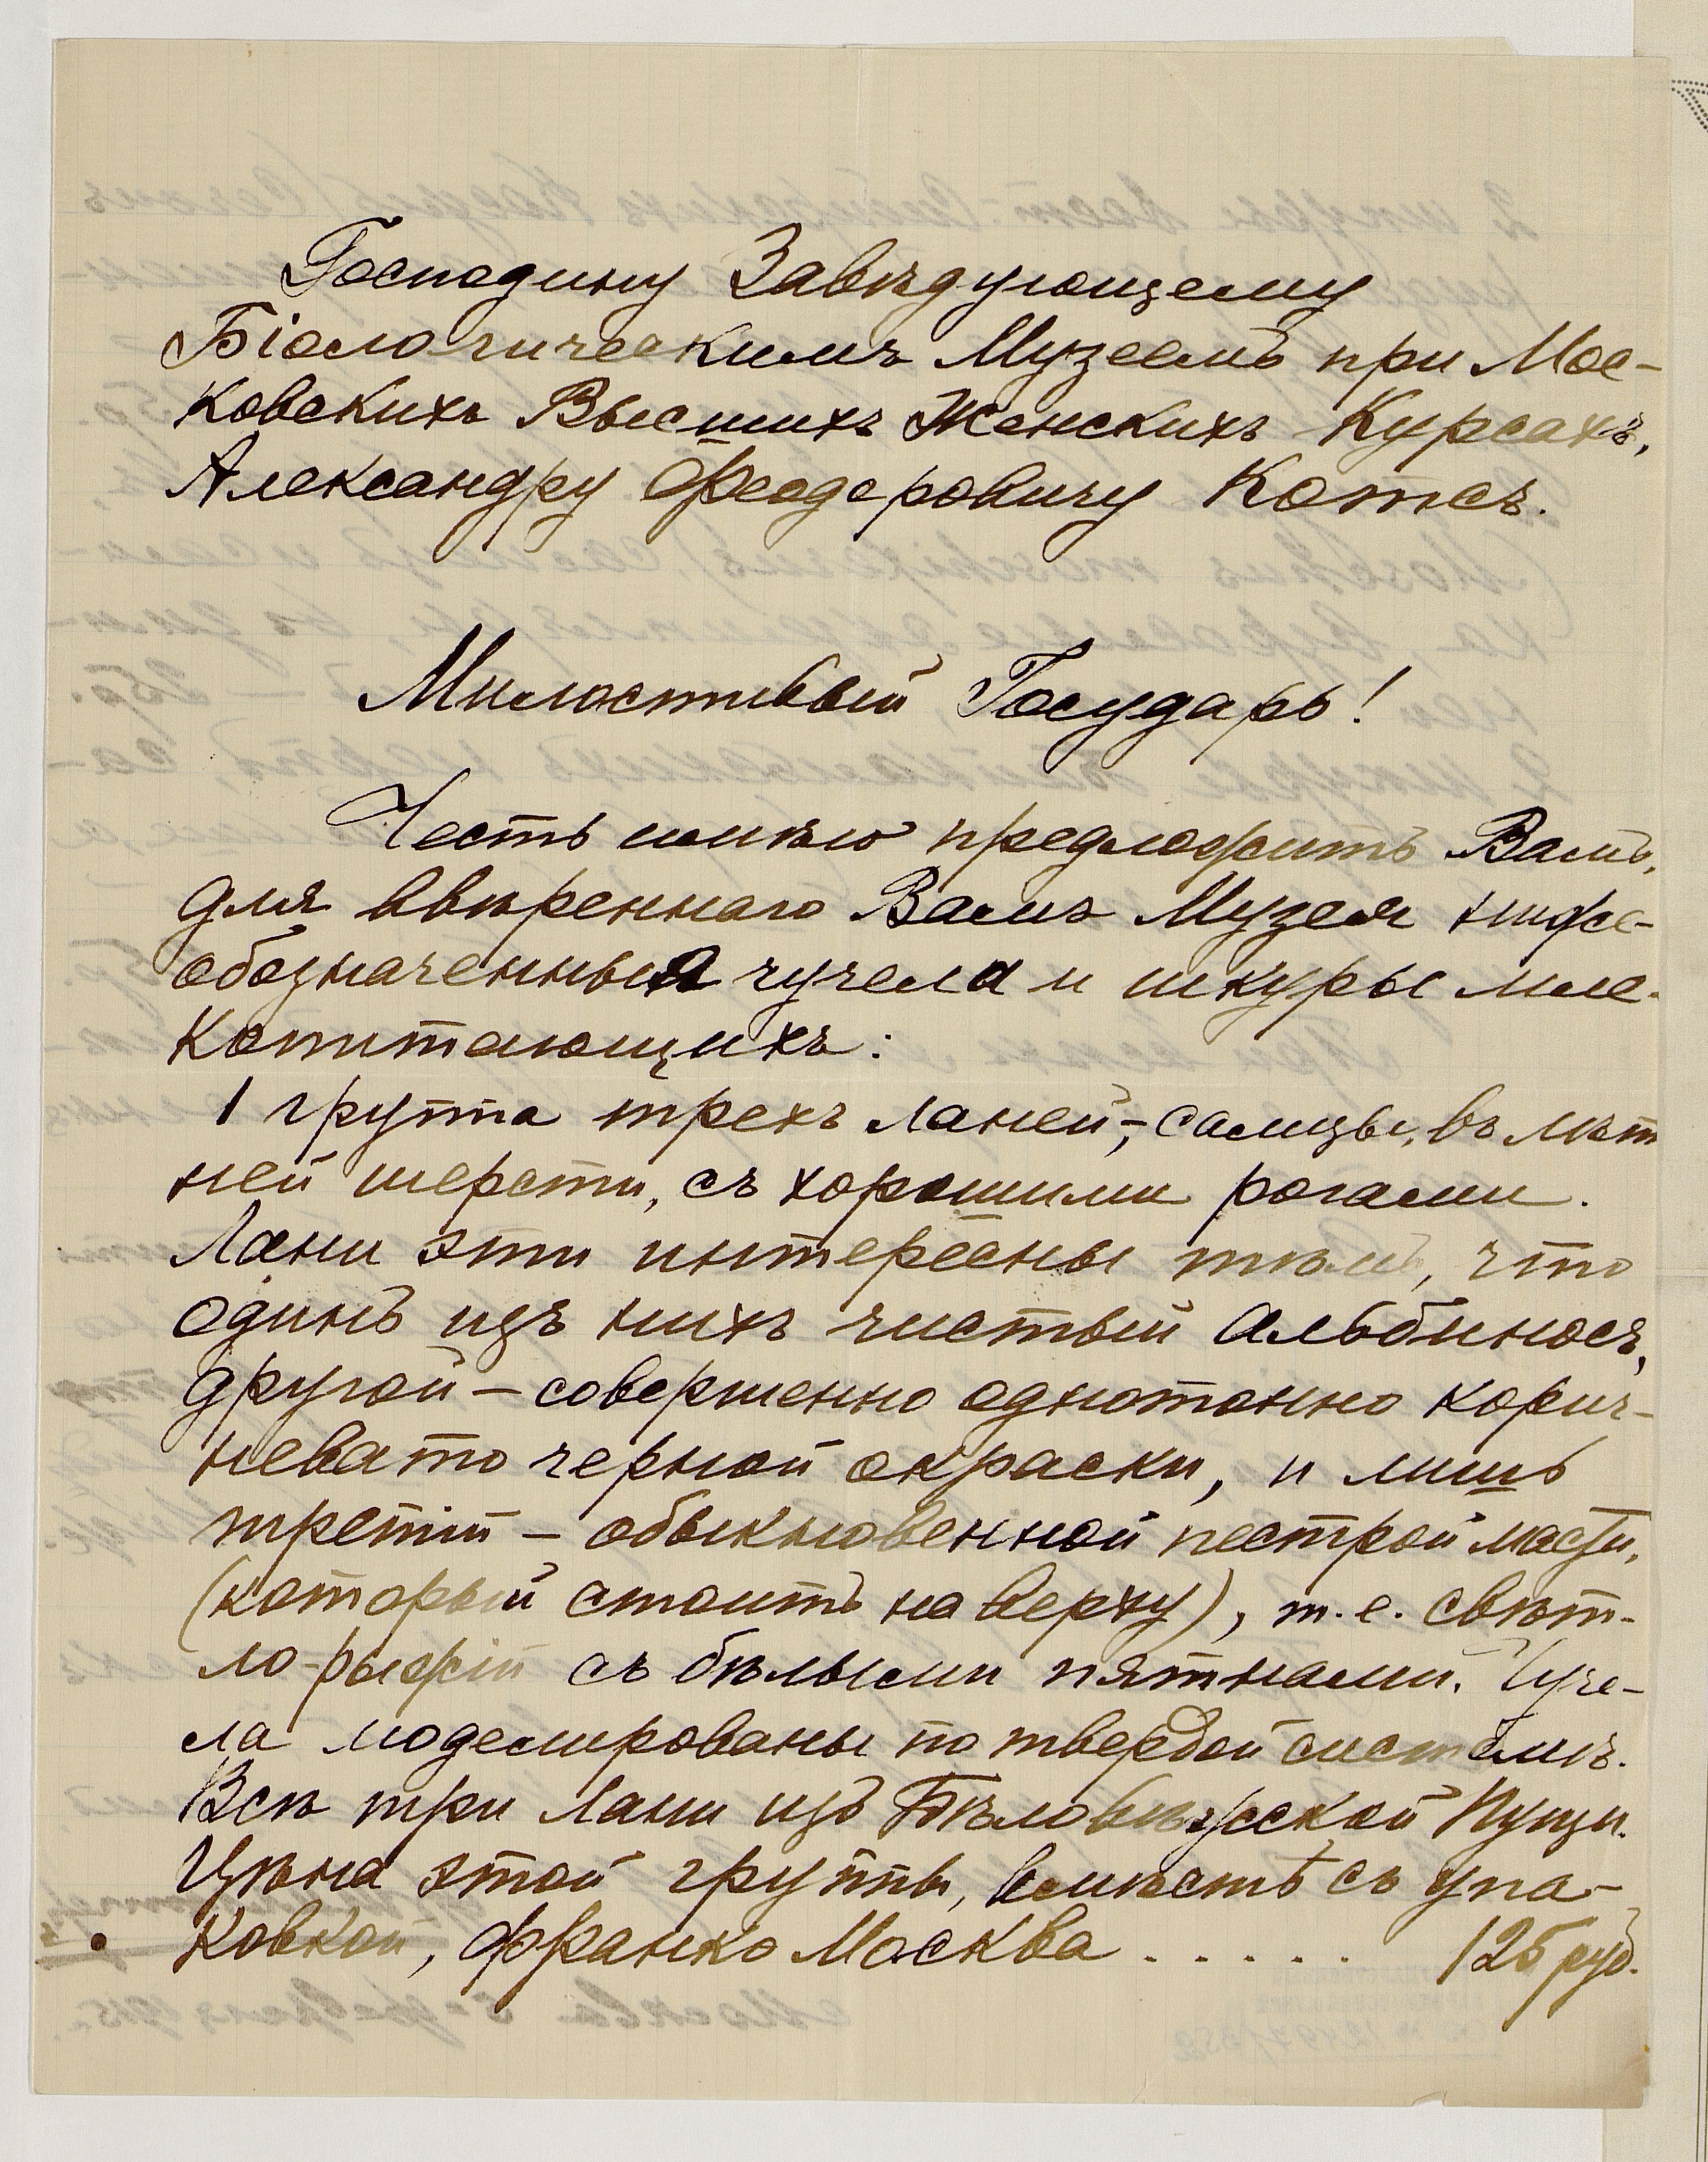 Господину Завѣдующему
Біологическимъ Музеемъ при Мос-
ковскихъ Высшихъ Женскихъ Курсахъ,
Александру Феодоровичу Котсъ.
Милостивый Государь!
Честь имѣю предложить Вамъ,
для ввѣреннаго Вамъ Музея ниже-
обозначенныя чучела и шкуры мле-
копитающихъ:
1 группа трехъ ланей-, самцы, въ лѣт
ней шерсти, съ хорошими рогами.
Лани эти интересны тѣмъ, что
одинъ изъ нихъ чистый альбиносъ,
другой – совершенно однотонно корич-
невато черной окраски, и лишь
третій – обыкновенной пестрой масти,
(который стоитъ на верху), т. е. свѣт-
ло-рыжій съ бѣлыми пятнами. Чуче-
ла моделированы по твердой системѣ.
Всѣ три Лани изъ Бѣловѣжской Пущи.
Цѣна этой группы, вмѣстѣ съ упа-
ковкой, франко Москва . . . . . 125 руб.